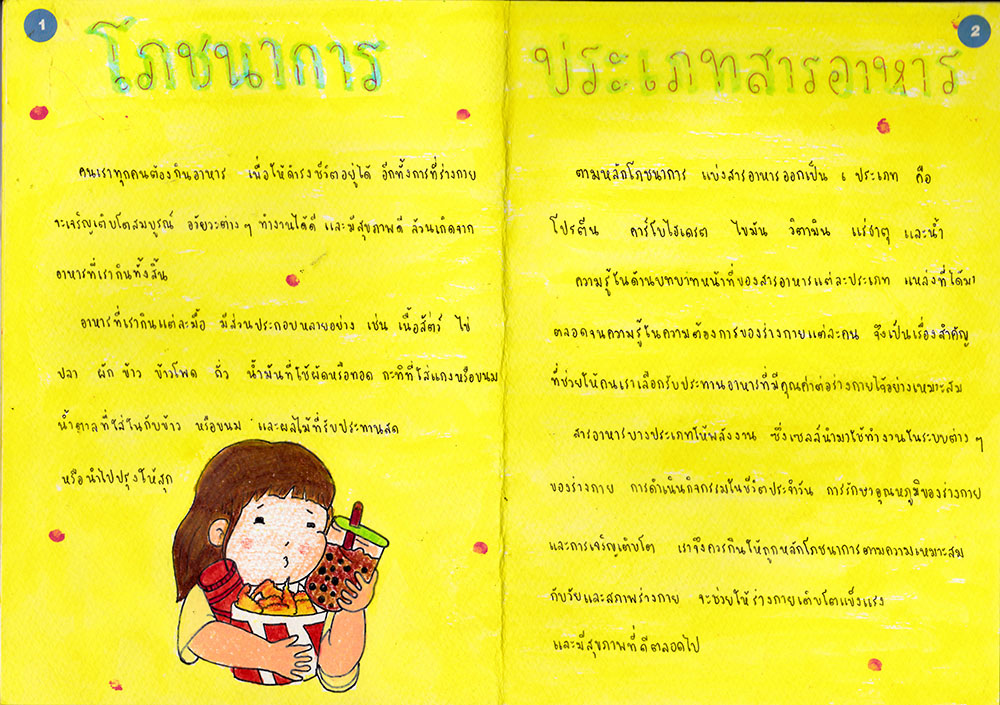 1
โภชนาการ
คนเราทุกคนต้องกินอาหาร เพื่อให้ดำรงชีวิตอยู่ได้ อีกทั้งการที่ร่างกาย
จะเจริญเติบโตสมบูรณ์ อวัยวะต่างๆ ทำงานได้ดี และมีสุขภาพดี ล้วนเกิดจาก
อาหารที่เรากินทั้งสิ้น
อาหารที่เรากินแต่ละมื้อ มีส่วนประกอบหลายอย่าง เช่น เนื้อสัตว์ ไข่
ปลา ผัก ข้าว ข้าวโพด ถั่ว น้ำมันที่ใช้ผัดหรือทอด กะทิที่ใส่แกงหรือขนม
น้ำตาลที่ใส่ในกับข้าว หรือขนม และผลไม้ที่รับประทานสด
หรือนำไปปรุงให้สุก
2
ประเภทสารอาหาร
ตามหลักโภชนาการ แบ่งสารอาหารออกเป็น ๖ ประเภท คือ
โปรตีน คาร์โบไฮเดรต ไขมัน วิตามิน แร่ธาตุ และน้ำ
ความรู้ในด้านบทบาทหน้าที่ของสารอาหารแต่ละประเภท แหล่งที่ได้มา
ตลอดจนความรู้ในความต้องการของร่างกายแต่ละคน จึงเป็นเรื่องสำคัญ
ที่ช่วยให้คนเราเลือกรับประทานอาหารที่มีคุณค่าต่อร่างกายได้อย่างเหมาะสม
สารอาหารบางประเภทให้พลังงาน ซึ่งเซลล์นำมาใช้ทำงานในระบบต่าง ๆ
ของร่างกาย การดำเนินกิจกรรมในชีวิตประจำวัน การรักษาอุณหภูมิของร่างกาย
และการเจริญเติบโต เราจึงควรกินให้ถูกหลักโภชนาการตามความเหมาะสม
กับวัยและสภาพร่างกาย จะช่วยให้ร่างกายเติบโตแข็งแรง
และมีสุขภาพที่ดีตลอดไป